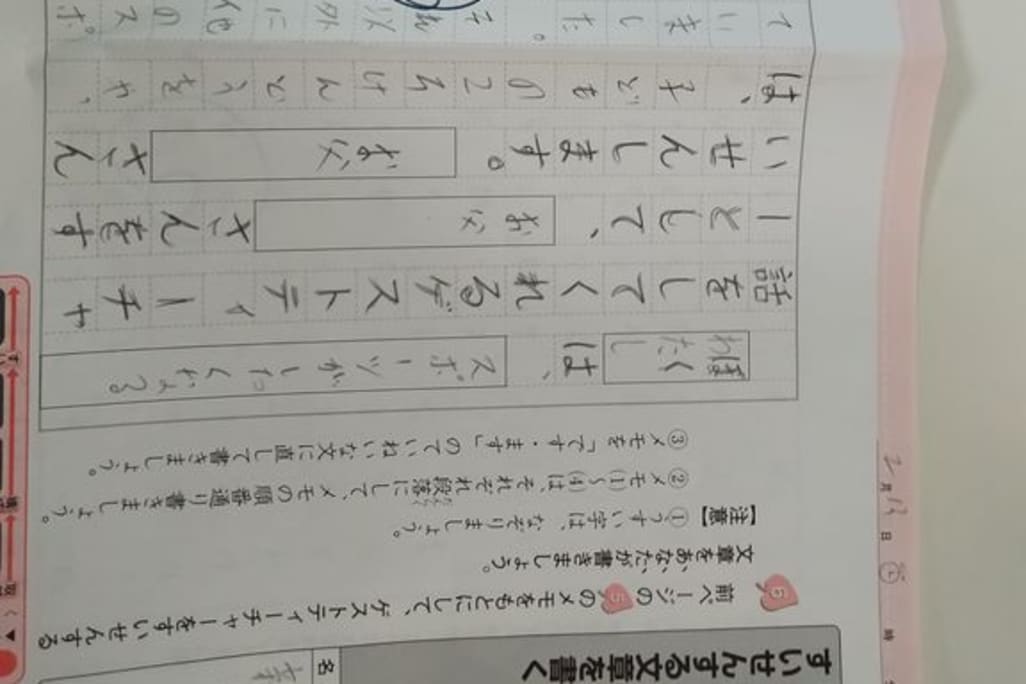 月 日 時
すいせんする文章を書く
名
6 前ページの5のメモをもとにして、ゲストティーチャーをすいせんする
文章をあなたが書きましょう。
【注意】①うすい字は、なぞりましょう。
②メモ(1)〜(4)は、それぞれ段落にして、メモの順番通り書きましょう。
③メモを「です・ます」のていねいな文に直して書きましょう。
わたし
ぼく
は、スポーツがしたくなる
話をしてくれるゲストティーチャ
ーとして、お父さんをす
いせんします。お父さん
は、子どものころけんどうをや
っていました。それ以外に他のスポ